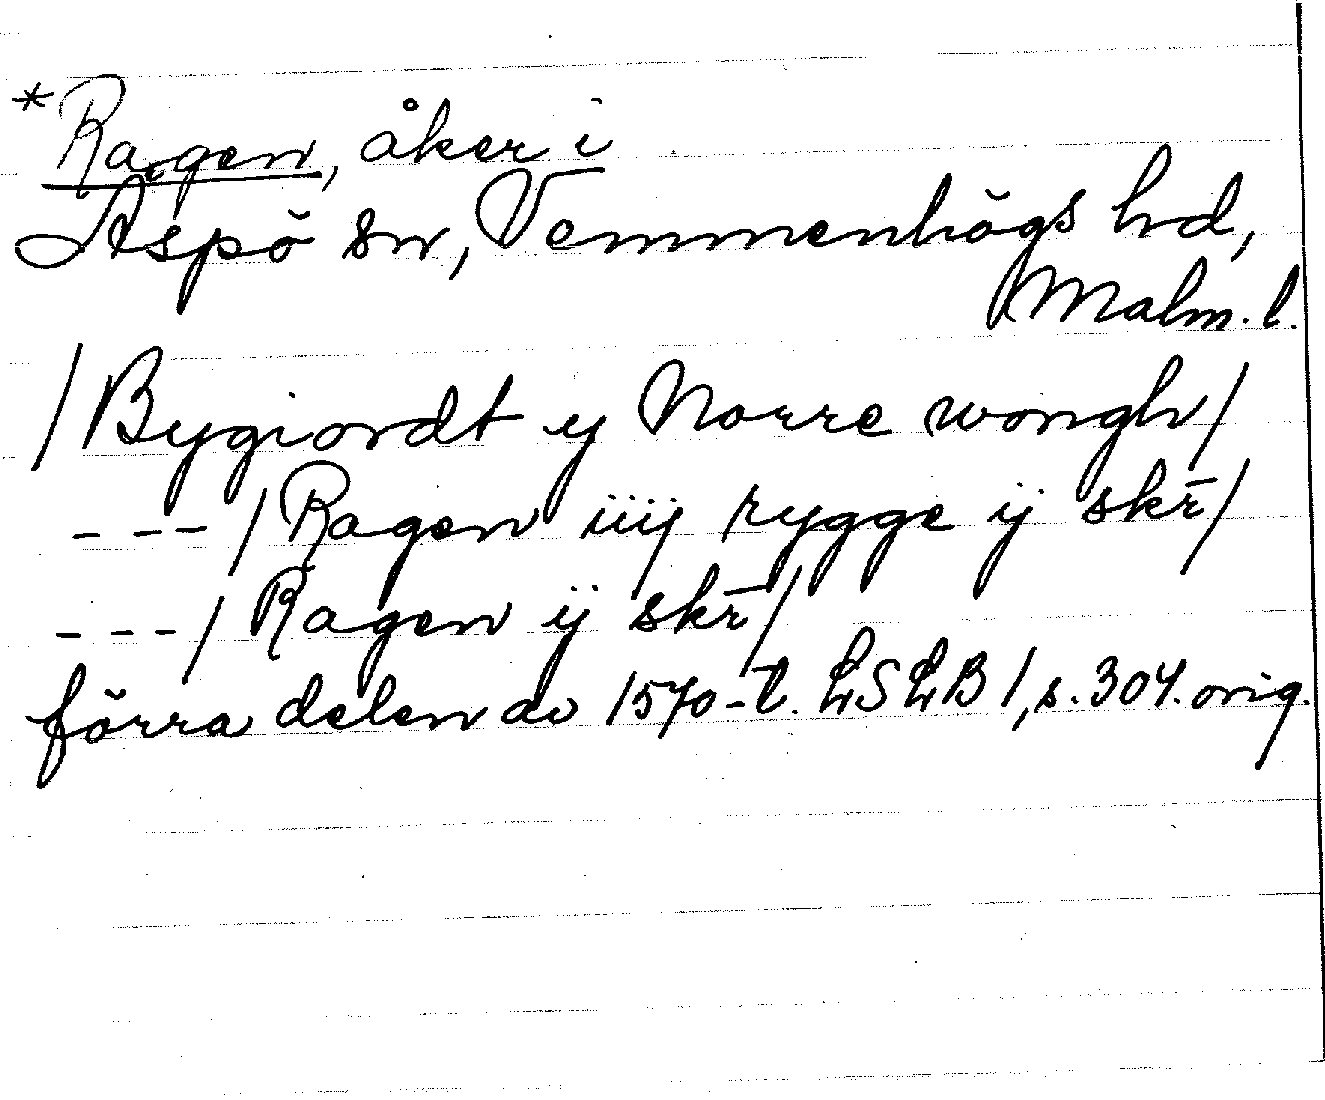 *Ragen, åker i
Aspö sn, Vemmenhögs hd,
Malm. l.
/ Bygiordt ij Norre wongh /
--- / Ragen iiij rygge ij skr̄ /
--- / Ragen ij skr̄ /
förra delen av 1570-t. LSLB 1, s. 304. orig.